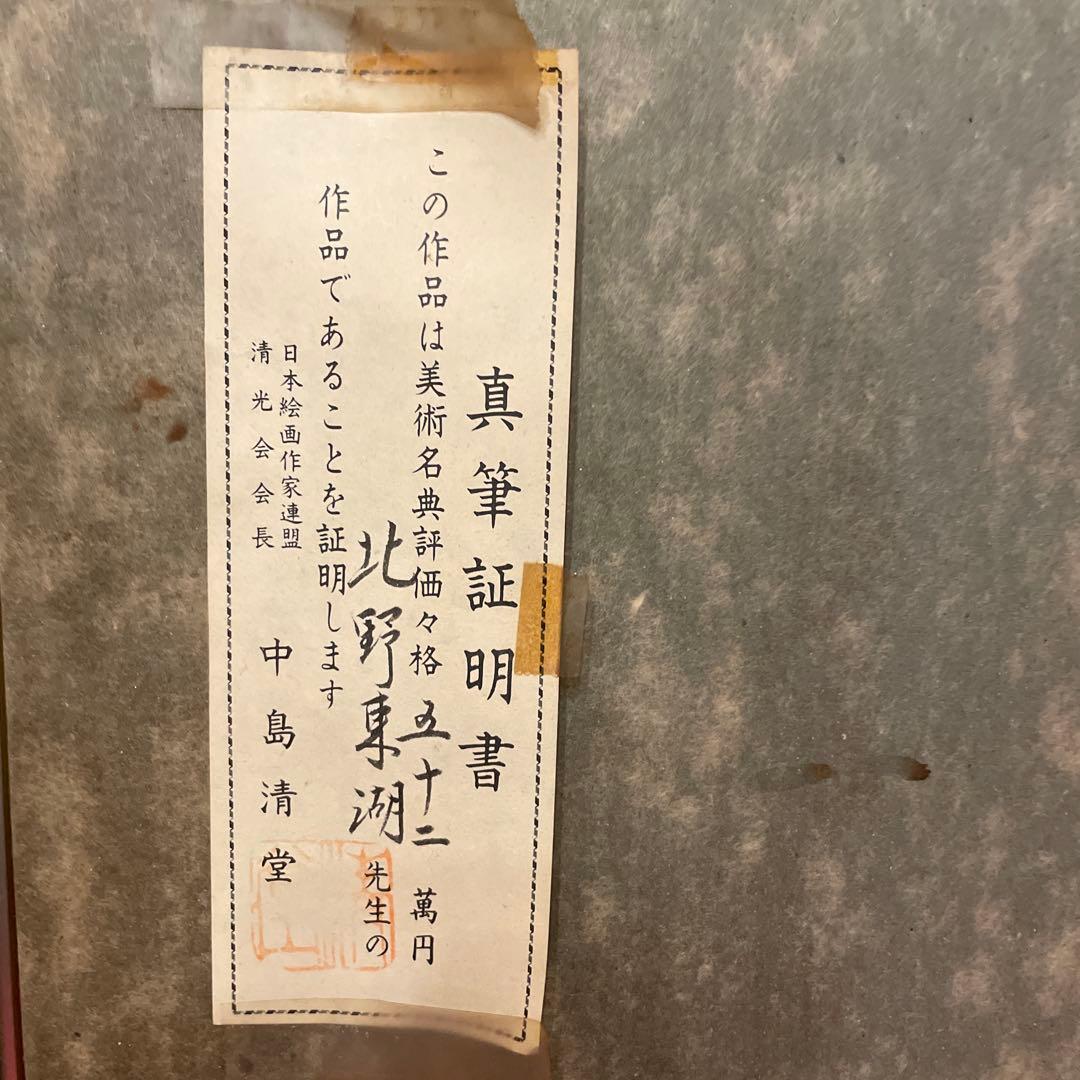 真筆証明書
この作品は美術名典評価々格五十二萬円
北野東湖先生の
作品であることを証明します
日本絵画作家連盟
清光会会長
中島清堂